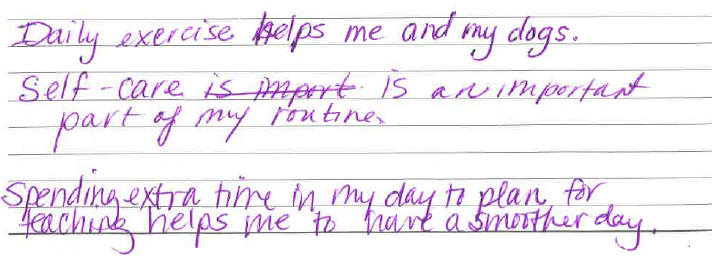 Daily exercise helps me and my dogs.
Self-care is import is an important
part of my routine.
Spending extra time in my day to plan for
teaching helps me to have a smoother day.